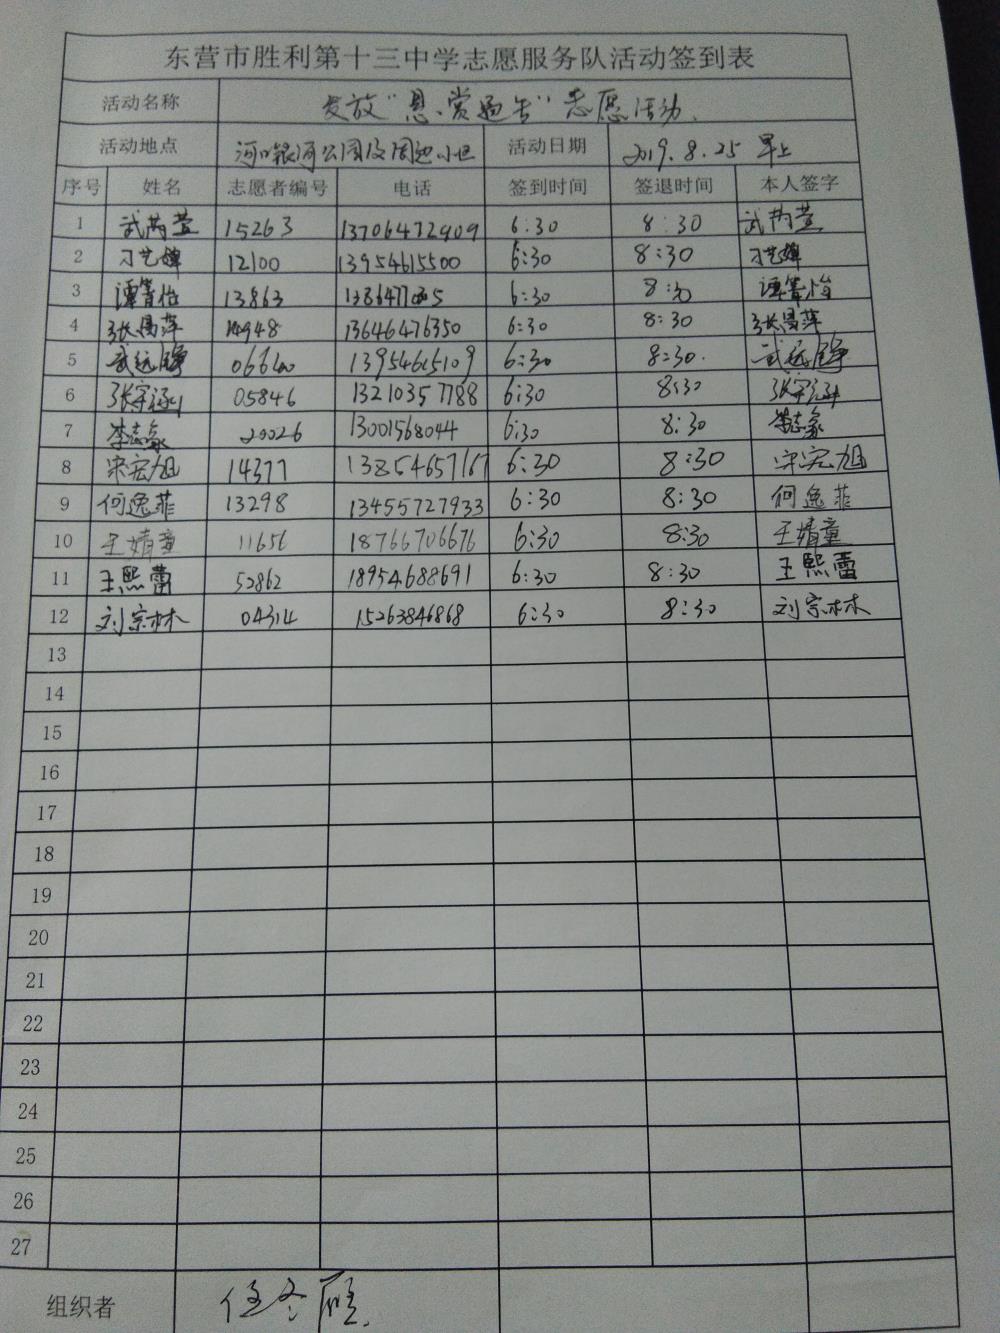 东营市胜利第十三中学志愿服务队活动签到表
活动名称 发放“悬赏通告”志愿活动.
活动地点 河口银河公园及周边小区 活动日期 2019.8.25 早上
序号 姓名 志愿者编号 电话 签到时间 签退时间 本人签字
1 武芮萱 15263 13706472909 6:30 8:30 武芮萱
2 刁艺婵 12100 13954615500 6:30 8:30 刁艺婵
3 谭箐怡 13863 6:30 8:30 谭箐怡
4 张昌萍 13646476350 6:30 8:30 张昌萍
5 武远 6:30 8:30. 武远
6 张宇涵 05846 13210357788 6:30 8:30 张宇涵
7 李志豪 20026 13001568044 6:30 8:30 李志豪
8 宋宏旭 14377 13854657167 6:30 8:30 宋宏旭
9 何逸菲 13298 13455727933 6:30 8:30 何逸菲
10 王婧童 11656 18766706676 6:30 8:30 王婧童
11 王熙蕾 52862 18954688691 6:30 8:30 王熙蕾
12 刘宗林 04314 15263846868 6:30 8:30 刘宗林
13
14
15
16
17
18
19
20
21
22
23
24
25
26
27
组织者 任冬雁.